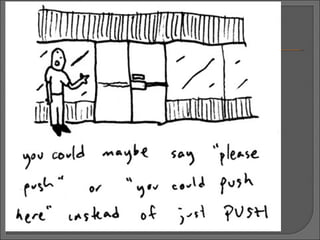 you could maybe say "please
push" or "you could push
here" instead of just PUSH